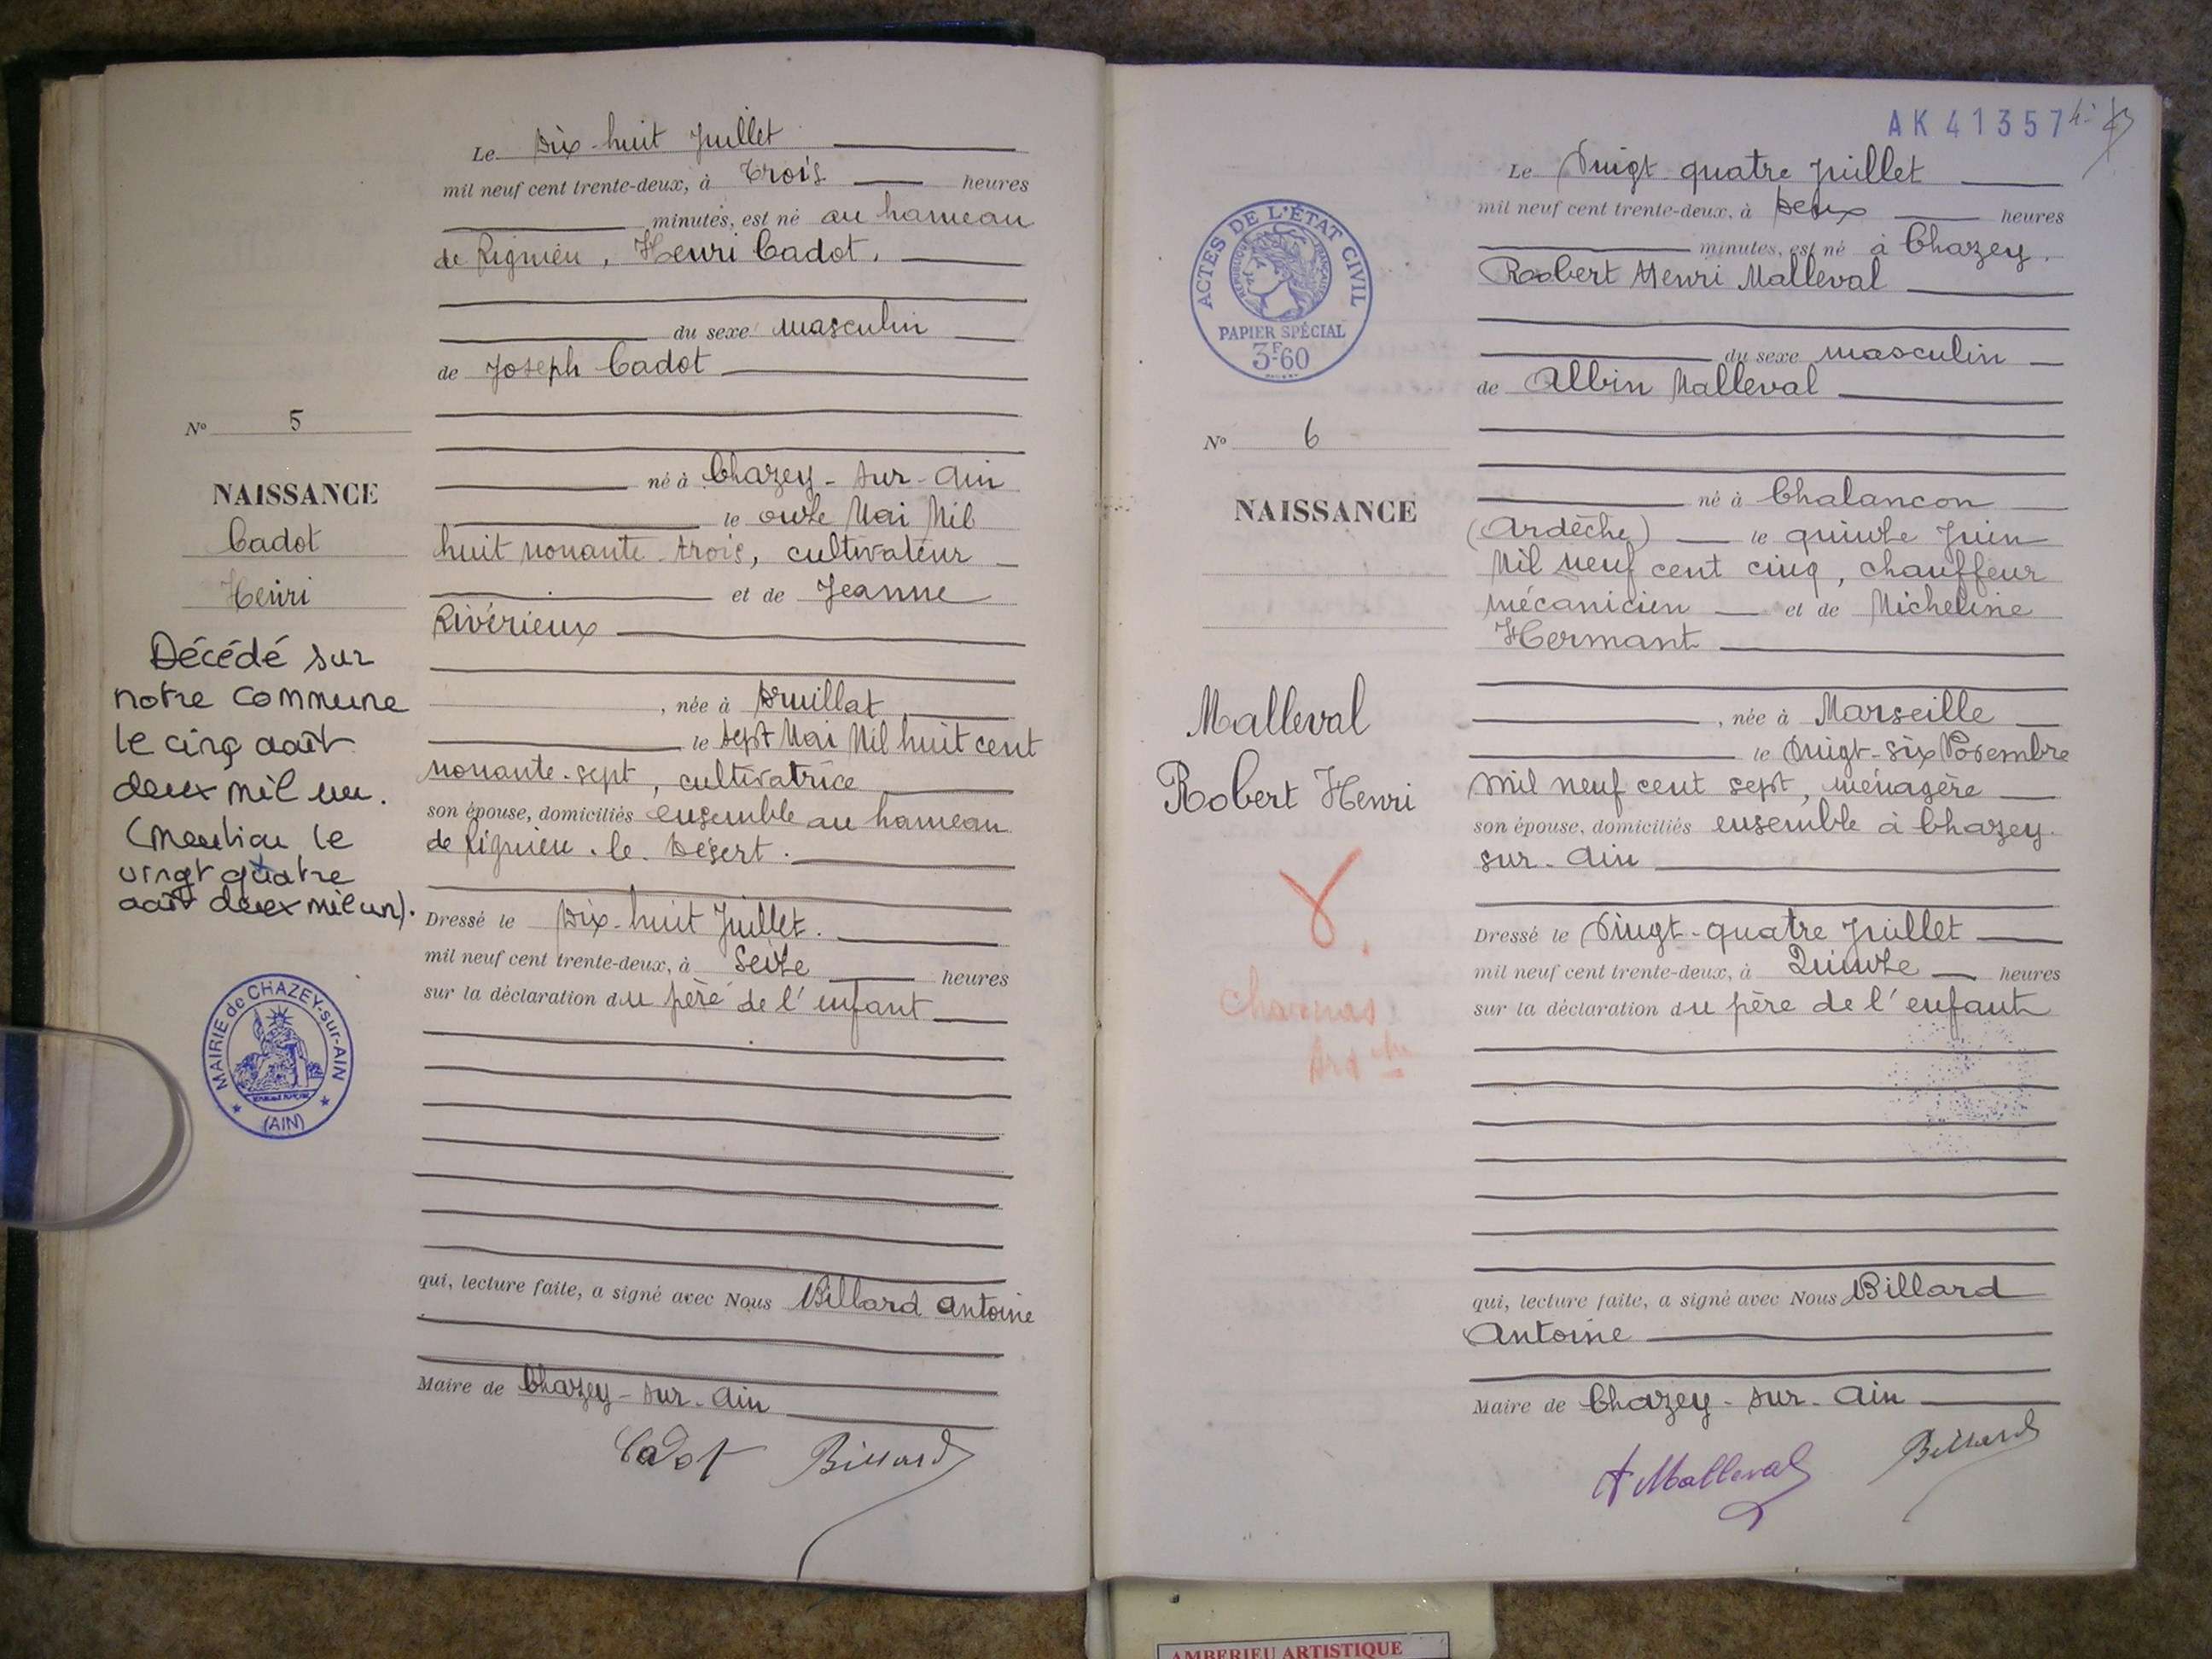 Le Dix-huit Juillet
mil neuf cent trente-deux, à Trois heures
minutes, est né au hameau
de Rignieu, Henri Cadot.
du sexe masculin
de Joseph Cadot
né à Chazey-sur-Ain
le onze Mai Mil
huit nonante-trois, cultivateur
et de Jeanne
Rivérieux
, née à Druillat
le sept Mai Mil huit cent
nonante-sept, cultivatrice
son épouse, domiciliés ensemble au hameau
de Rignieu-le-Désert.
Dressé le Dix-huit Juillet.
mil neuf cent trente-deux, à Seize heures
sur la déclaration du père de l'enfant
qui, lecture faite, a signé avec Nous Billard Antoine
Maire de Chazey-sur-Ain
Cadot Billard
N° 5
NAISSANCE
Cadot
Henri
Décédé sur
notre commune
le cinq août
deux mil un.
(mention le
vingt quatre
août deux mil un).
MAIRIE de CHAZEY-sur-AIN
(AIN)
AK 41357
Le Vingt-quatre Juillet
mil neuf cent trente-deux, à Deux heures
minutes, est né à Chazey.
Robert Henri Malleval
du sexe masculin
de Albin Malleval
né à Chalancon
(Ardèche) le quinze Juin
Mil neuf cent cinq, chauffeur
mécanicien et de Micheline
Hermant
, née à Marseille
le Vingt-six Novembre
mil neuf cent sept, ménagère
son épouse, domiciliés ensemble à Chazey-
sur-Ain
Dressé le Vingt-quatre Juillet
mil neuf cent trente-deux, à Quinze heures
sur la déclaration du père de l'enfant
qui, lecture faite, a signé avec Nous Billard
Antoine
Maire de Chazey-sur-Ain
A Malleval Billard
ACTES DE L'ÉTAT CIVIL
RÉPUBLIQUE FRANÇAISE
PAPIER SPÉCIAL
3F60
N° 6
NAISSANCE
Malleval
Robert Henri
Charnas
Ardche
AMBERIEU ARTISTIQUE